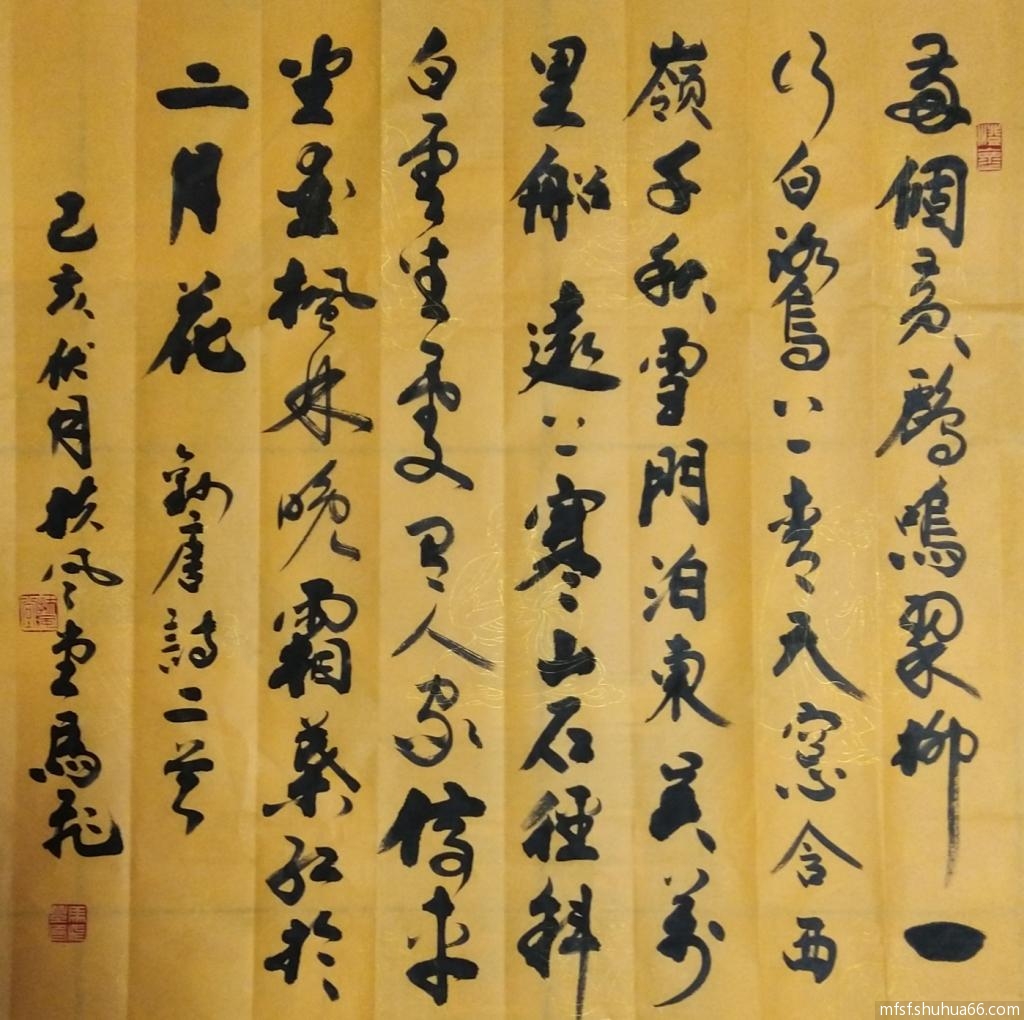 兩個黃鸝鳴翠柳一
行白鷺上青天窓含西
嶺千秋雪門泊東吳萬
里船 遠上寒山石徑斜
白雲生處有人家停車
坐愛楓林晚霜葉紅於
二月花 唐詩二首
己亥伏月扶風堂馬飛
mfsf.shuhua66.com